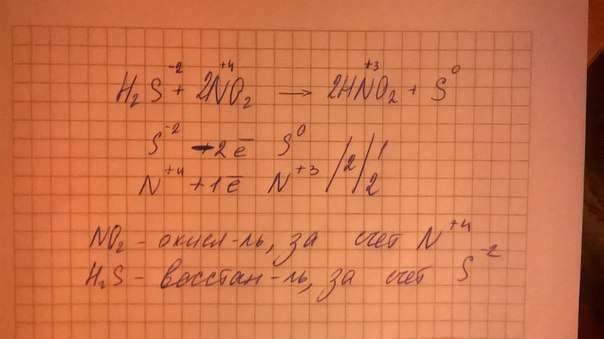 H₂S⁻² + 2N⁺⁴O₂ → 2HN⁺³O₂ + S⁰
S⁻² - 2ē S⁰ / 2 / 1
N⁺⁴ + 1ē N⁺³ / 2
NO₂ - окисл-ль, за счет N⁺⁴
H₂S - восстан-ль, за счет S⁻²